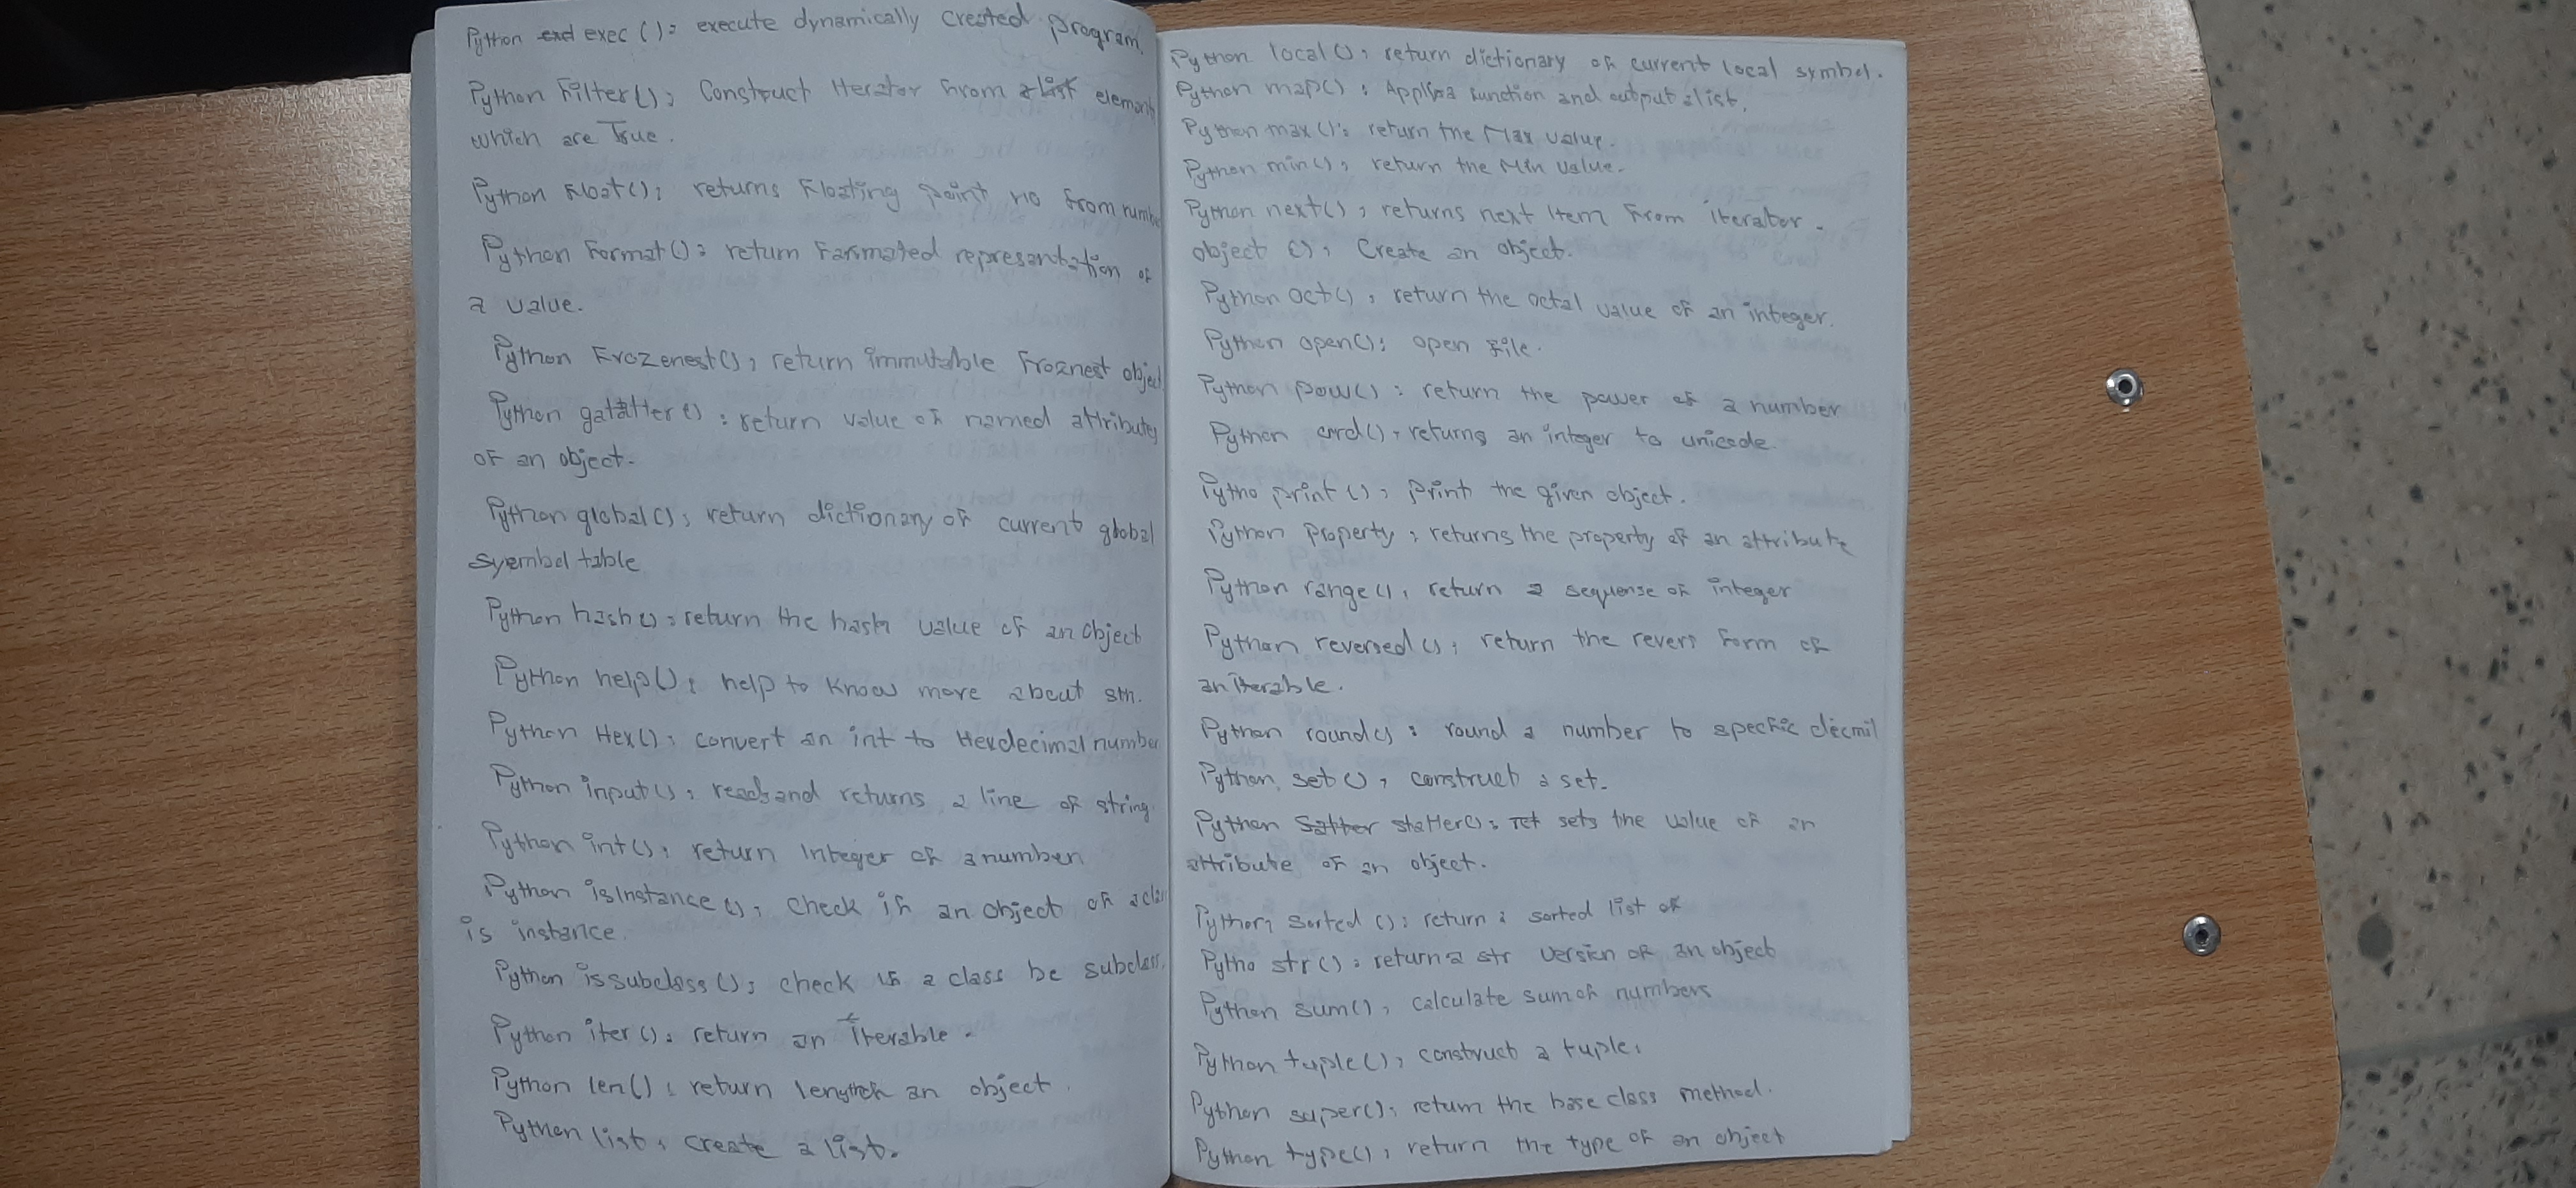 Python exec () : execute dynamically created program
Python Filter () : Construct Iterator from a list elements
which are True.
Python float () : returns floating point no from number
Python Format () : return Formated represantation of
a value.
Python Frozenest () : return immutable froznest object
Python gatalter () : return value of named attribute
of an object.
Python global () : return dictionary of current global
Symbol table
Python hash () : return the hash value of an object
Python help () : help to know more about sth.
Python Hex () : convert an int to Hexdecimal number
Python input () : reads and returns a line of string.
Python int () : return Integer of a number
Python isInstance () : check if an object of a class
is instance.
Python issubclass () : check if a class be subclass
Python iter () : return an iterable.
Python len () : return length an object.
Python list : create a list.
Python local () : return dictionary of current local symbol.
Python map () : Applies function and output a list.
Python max () : return the Max value.
Python min () : return the Min value.
Python next () : returns next Item from iterator.
object () : Create an object.
Python Oct () : return the octal value of an integer.
Python open () : open file.
Python pow () : return the power of a number
Python ord () : returns an integer to unicode.
Pytho print () : print the given object.
Python property : returns the property of an attribute
Python range () : return a sequense of integer
Python reversed () : return the revers form of
an iterable.
Python round () : round a number to specfic decmil
Python set () : construct a set.
Python statter () : sets the value of an
attribute of an object.
Python sorted () : return : sorted list of
Pytho str () : return a str version of an object
Python sum () : calculate sum of numbers
Python tuple () : construct a tuple :
Python super () : return the base class method.
Python type () : return the type of an object